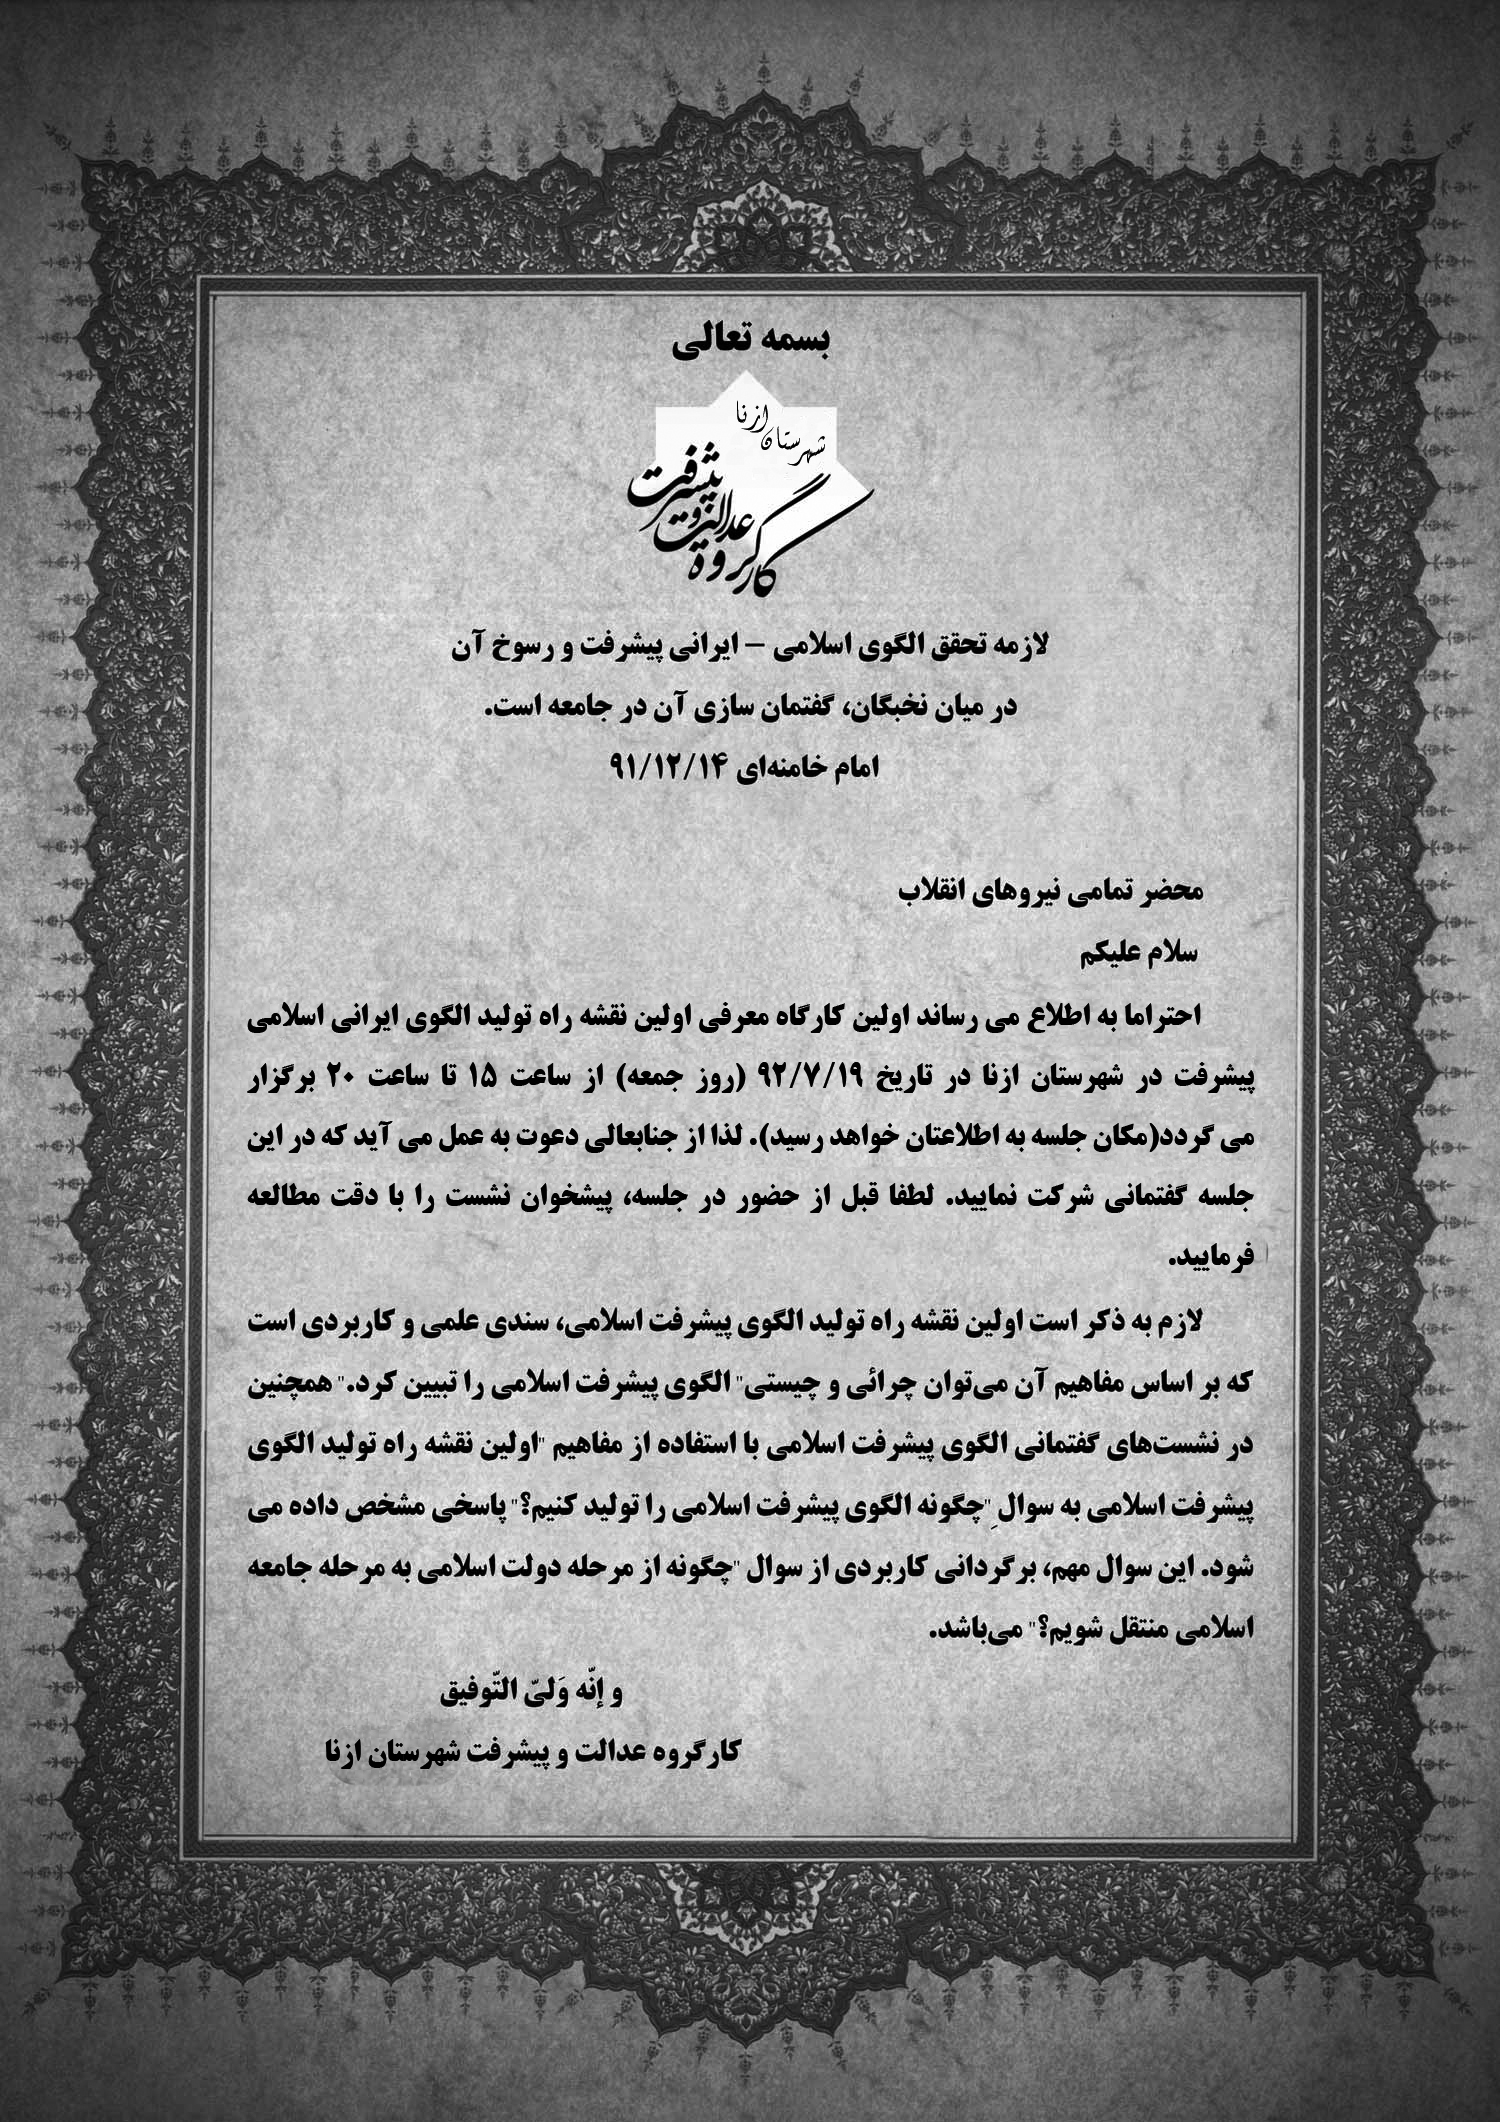 بسمه تعالی
شهرستان ازنا
کارگروه عدالت و پیشرفت
لازمه تحقق الگوی اسلامی – ایرانی پیشرفت و رسوخ آن
در میان نخبگان، گفتمان سازی آن در جامعه است.
امام خامنه‌ای ۹۱/۱۲/۱۴
محضر تمامی نیروهای انقلاب
سلام علیکم
احتراما به اطلاع می رساند اولین کارگاه معرفی اولین نقشه راه تولید الگوی ایرانی اسلامی
پیشرفت در شهرستان ازنا در تاریخ ۹۲/۷/۱۹ (روز جمعه) از ساعت ۱۵ تا ساعت ۲۰ برگزار
می گردد(مکان جلسه به اطلاعتان خواهد رسید). لذا از جنابعالی دعوت به عمل می آید که در این
جلسه گفتمانی شرکت نمایید. لطفا قبل از حضور در جلسه، پیشخوان نشست را با دقت مطالعه
فرمایید.
لازم به ذکر است اولین نقشه راه تولید الگوی پیشرفت اسلامی، سندی علمی و کاربردی است
که بر اساس مفاهیم آن می‌توان چرائی و چیستی" الگوی پیشرفت اسلامی را تبیین کرد." همچنین
در نشست‌های گفتمانی الگوی پیشرفت اسلامی با استفاده از مفاهیم "اولین نقشه راه تولید الگوی
پیشرفت اسلامی به سوالِ "چگونه الگوی پیشرفت اسلامی را تولید کنیم؟" پاسخی مشخص داده می
شود. این سوال مهم، برگردانی کاربردی از سوال "چگونه از مرحله دولت اسلامی به مرحله جامعه
اسلامی منتقل شویم؟" می‌باشد.
و إنّه وَلیّ التّوفیق
کارگروه عدالت و پیشرفت شهرستان ازنا